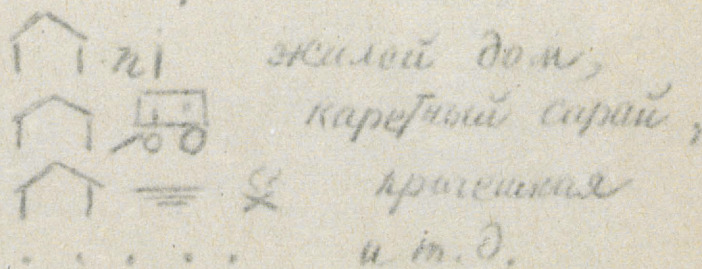 жилой дом,
каретный сарай,
прачешная
. . . . . и т.д.